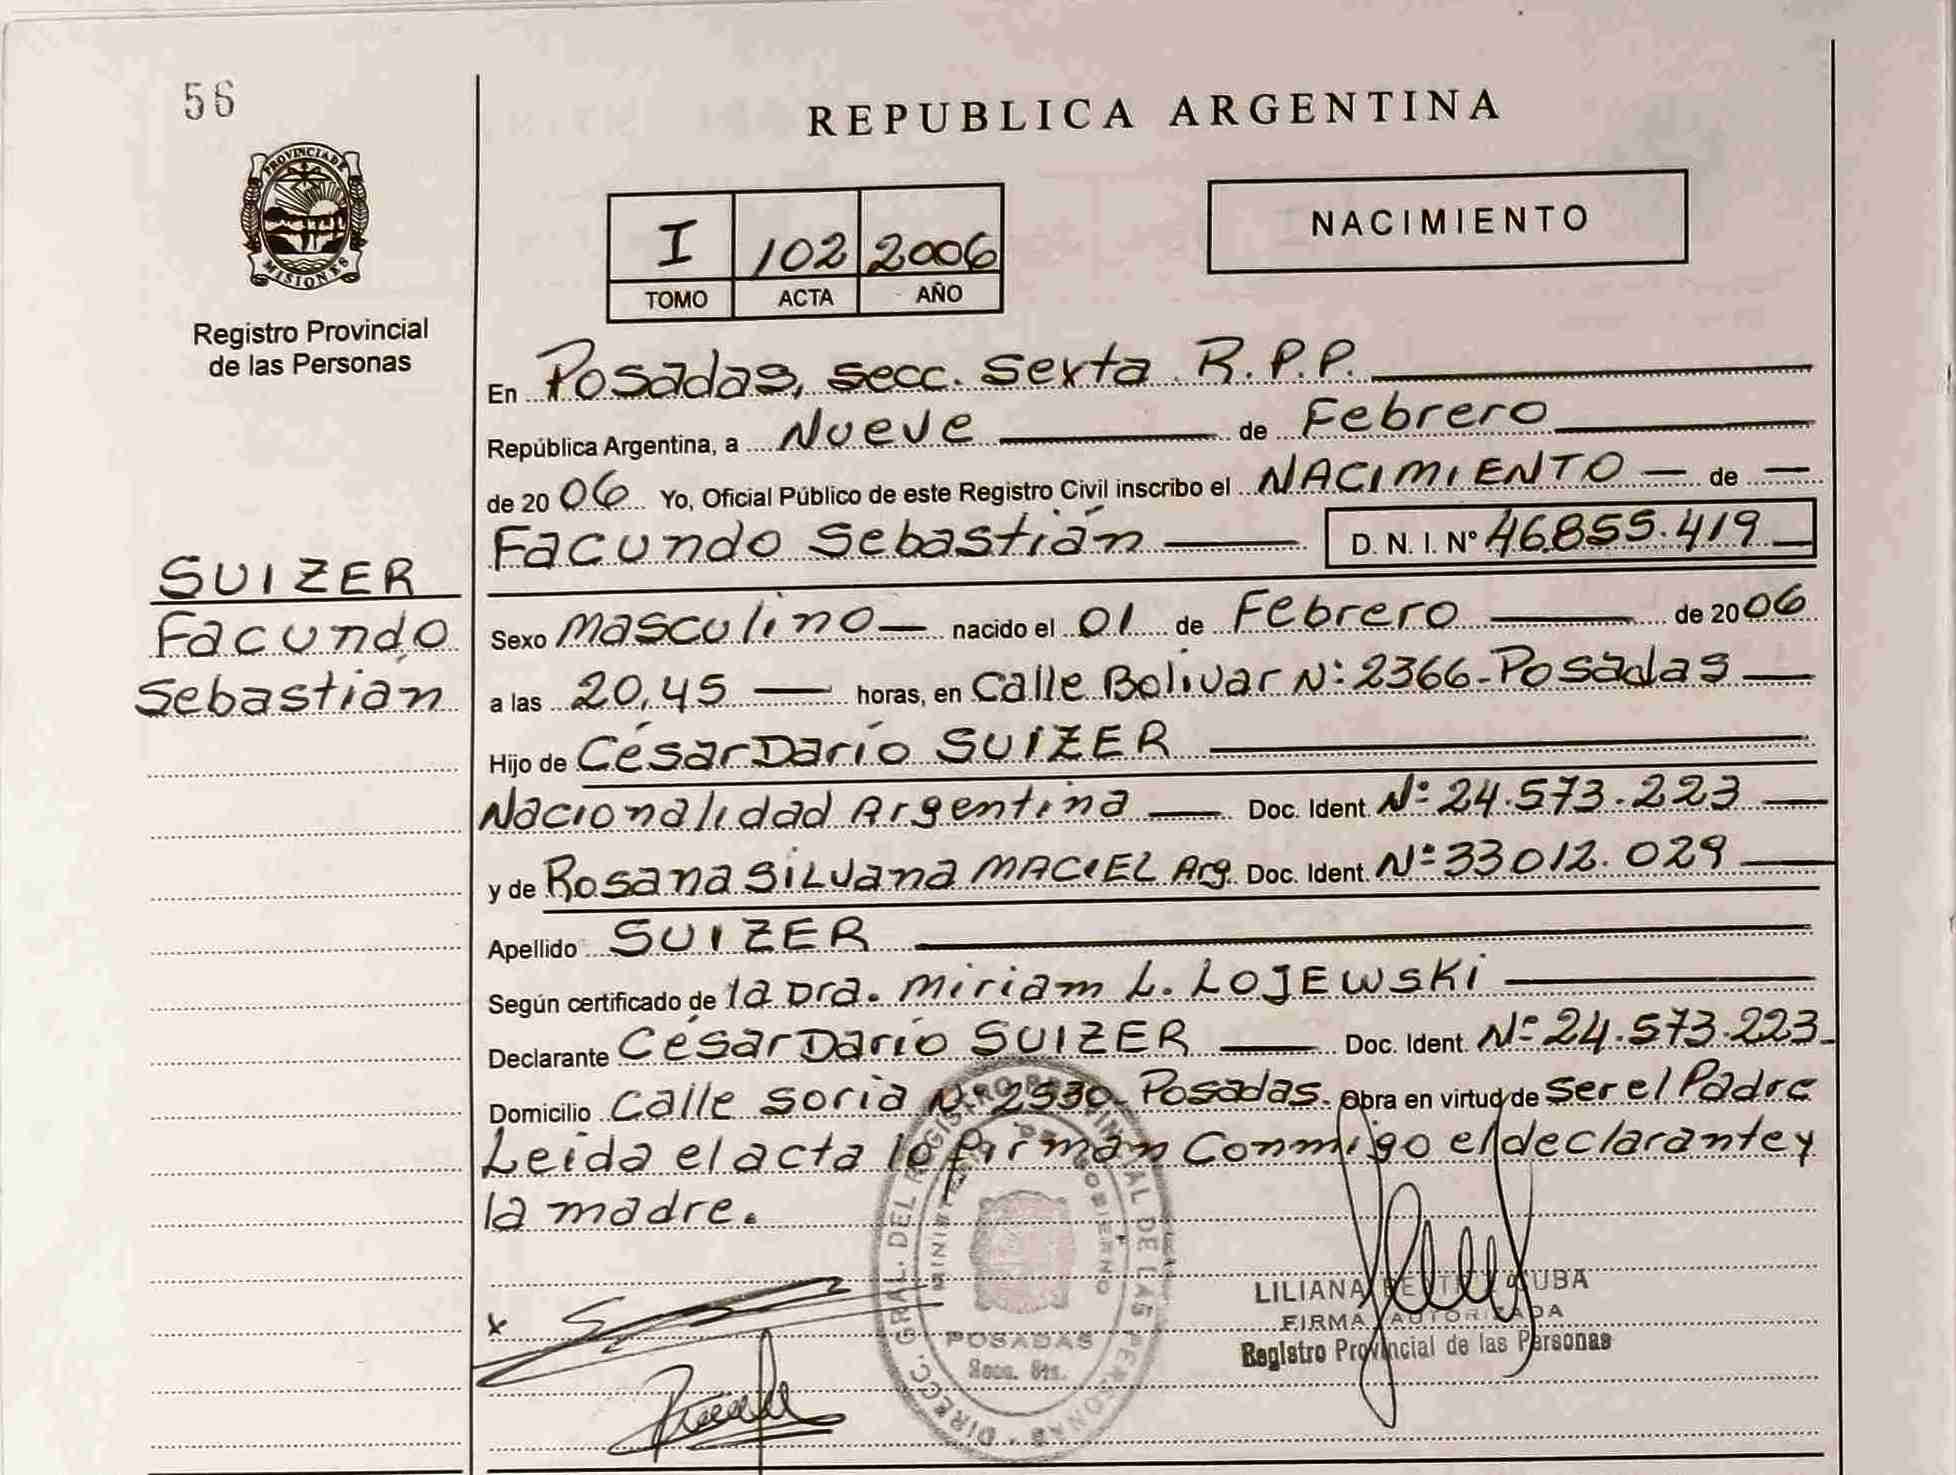 56
PROVINCIA DE
MISIONES
Registro Provincial
de las Personas
SUIZER
Facundo
Sebastián
REPUBLICA ARGENTINA
I 102 2006
TOMO ACTA AÑO
NACIMIENTO
En Posadas, secc. Sexta R.P.P.
República Argentina, a Nueve de Febrero
de 2006 Yo, Oficial Público de este Registro Civil inscribo el NACIMIENTO de
Facundo Sebastián D. N. I. N° 46.855.419
Sexo masculino nacido el 01 de Febrero de 2006
a las 20,45 horas, en Calle Bolivar N: 2366-Posadas
Hijo de César Darío SUIZER
Nacionalidad Argentina Doc. Ident. N° 24.573.223
y de Rosana Silvana MACIEL Arg. Doc. Ident. N° 33012.029
Apellido SUIZER
Según certificado de la Dra. Miriam L. LOJEWSKI
Declarante César Darío SUIZER Doc. Ident. N° 24.573.223
Domicilio Calle Soria N: 2330- Posadas. Obra en virtud de Ser el Padre
Leida el acta lo firman Conmigo el declarante y
la madre.
DIRECC. GRAL. DEL REGISTRO PROVINCIAL DE LAS PERSONAS
MINISTERIO DE GOBIERNO
POSADAS
Secc. 6ta.
x
LILIANA
FIRMA AUTORIZADA
Registro Provincial de las Personas